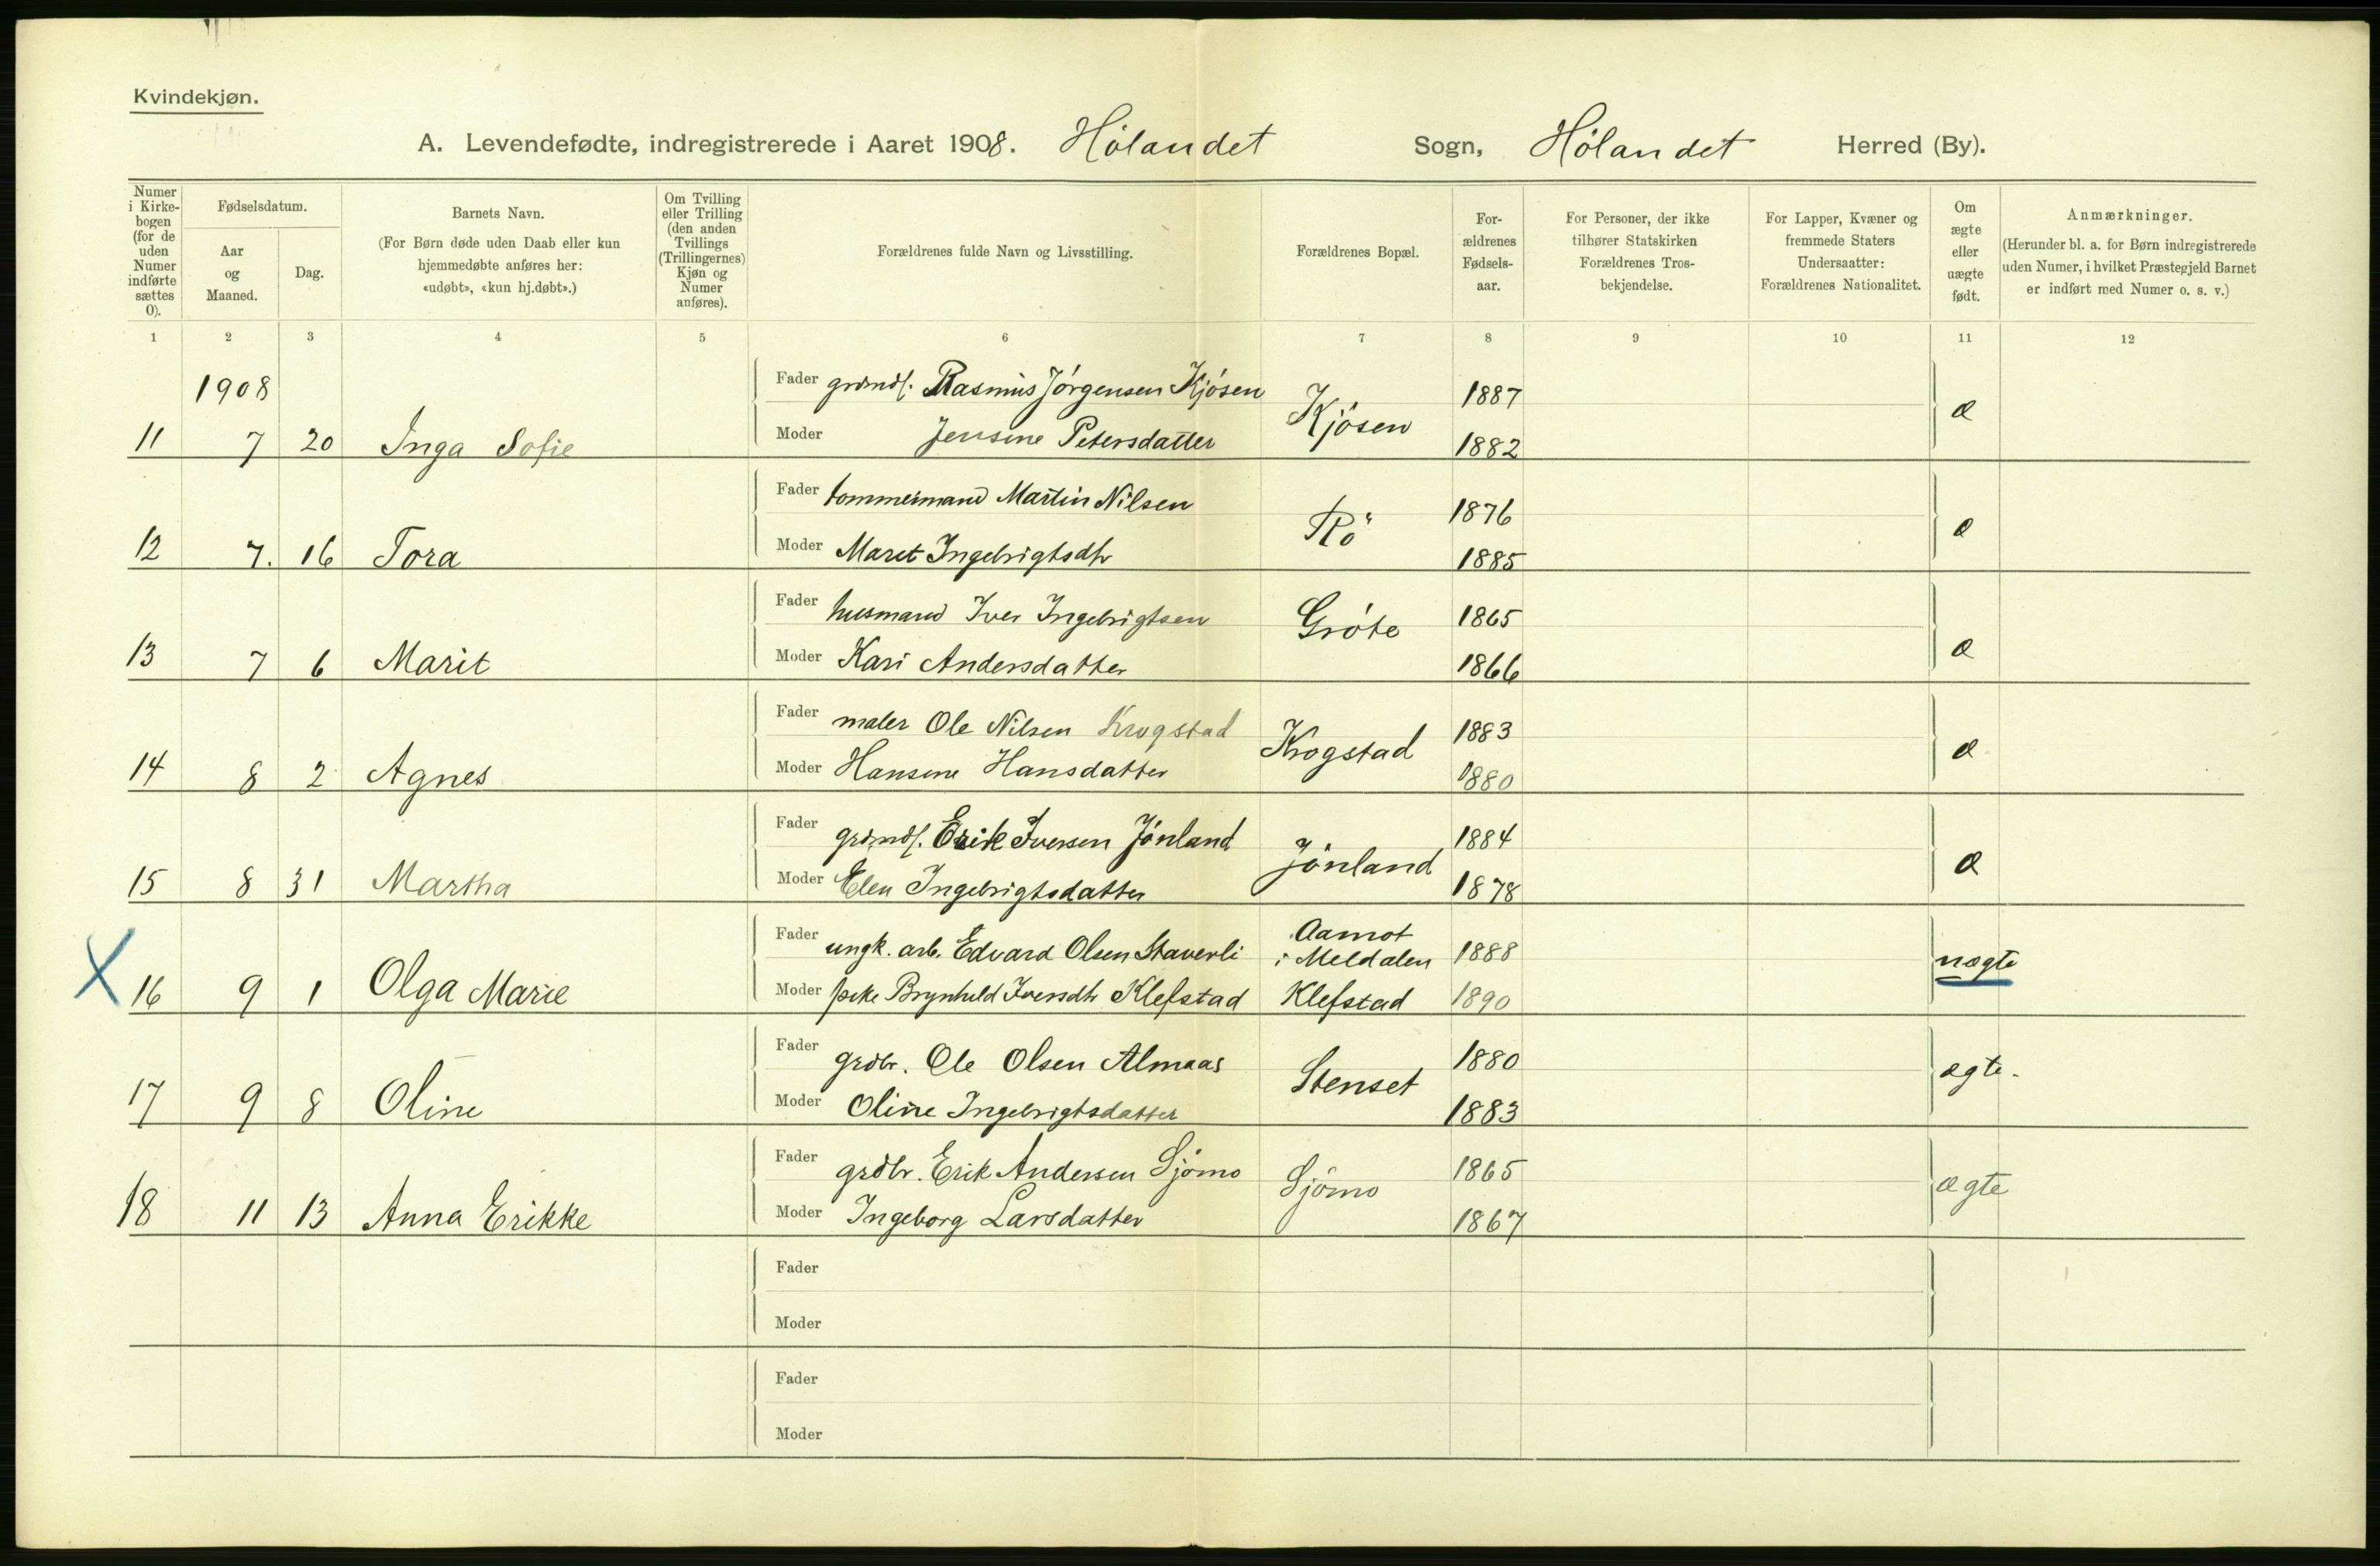 Kvindekjøn.
A. Levendefødte, indregistrerede i Aaret 1908. Hölandet Sogn, Hölandet Herred (By).
Numer i Kirkebogen (for de uden Numer indførte sættes 0).
Fødselsdatum.
Aar og Maaned.
Dag.
Barnets Navn.
(For Børn døde uden Daab eller kun hjemmedøbte anføres her: «udøbt», «kun hj.døbt».)
Om Tvilling eller Trilling (den anden Tvillings (Trillingernes) Kjøn og Numer anføres).
Forældrenes fulde Navn og Livsstilling.
Forældrenes Bopæl.
Forældrenes Fødselsaar.
For Personer, der ikke tilhører Statskirken Forældrenes Trosbekjendelse.
For Lapper, Kvæner og fremmede Staters Undersaatter: Forældrenes Nationalitet.
Om ægte eller uægte født.
Anmærkninger.
(Herunder bl. a. for Børn indregistrerede uden Numer, i hvilket Præstegjeld Barnet er indført med Numer o. s. v.)
1 2 3 4 5 6 7 8 9 10 11 12
1908
Fader Rasmus Jörgensen Kjösen 1887
11 7 20 Inga Sofie Moder Jensine Petersdatter Kjösen 1882 æ
Fader tommermand Martin Nilsen 1876
12 7. 16 Tora Moder Marit Ingebrigtsdtr Rö 1885 æ
Fader husmand Iver Ingebrigtsen Gröte 1865
13 7 6 Marit Moder Kari Andersdatter 1866 æ
Fader maler Ole Nilsen Krogstad 1883
14 8 2 Agnes Moder Hansine Hansdatter Krogstad 1880 æ
Fader Erik Iversen Jönland 1884
15 8 31 Martha Moder Elen Ingebrigtsdatter Jönland 1878 æ
Fader ungk. arb. Edvard Olsen Staverli Aamot i Meldalen 1888 uægte
X 16 9 1 Olga Marie Moder pike Brynhild Iversdtr Klefstad Klefstad 1890
Fader grdbr. Ole Olsen Almaas 1880 ægte.
17 9 8 Oline Moder Oline Ingebrigtsdatter Stenset 1883
Fader grdbr. Erik Andersen Sjömo 1865
18 11 13 Anna Erikke Moder Ingeborg Larsdatter Sjömo 1867 ægte
Fader
Moder
Fader
Moder